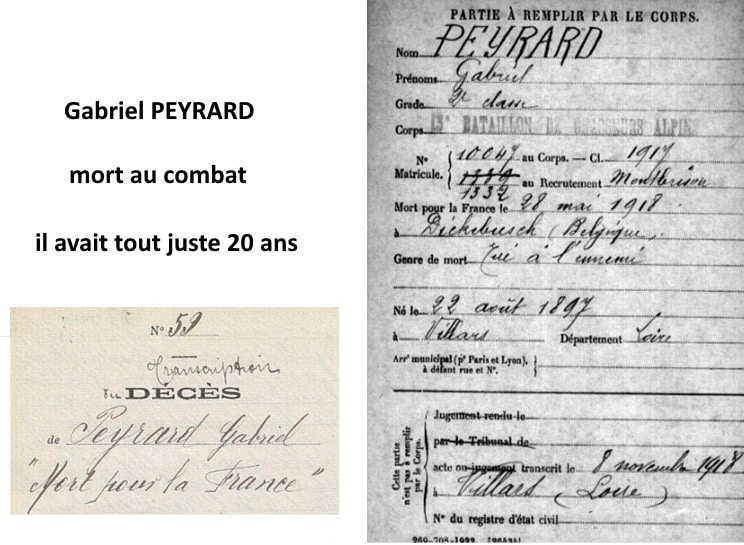 Gabriel PEYRARD
mort au combat
il avait tout juste 20 ans
N° 59
Transcription
du DÉCÈS
de Peyrard Gabriel
"Mort pour la France"
PARTIE À REMPLIR PAR LE CORPS.
Nom PEYRARD
Prénoms Gabriel
Grade 2e classe
Corps 13e BATAILLON DE CHASSEURS ALPINS
N° Matricule. { 10047 au Corps. — Cl. 1917
1889 au Recrutement Montbrison
1332
Mort pour la France le 28 mai 1918
à Dickebusch (Belgique)
Genre de mort Tué à l'ennemi
Né le 22 août 1897
à Villars Département Loire
Arrt municipal (pr Paris et Lyon), à défaut rue et N°. }
Cette partie n'est pas à remplir par le Corps.
Jugement rendu le
par le Tribunal de
acte ou jugement transcrit le 8 novembre 1918
à Villars (Loire)
N° du registre d'état civil